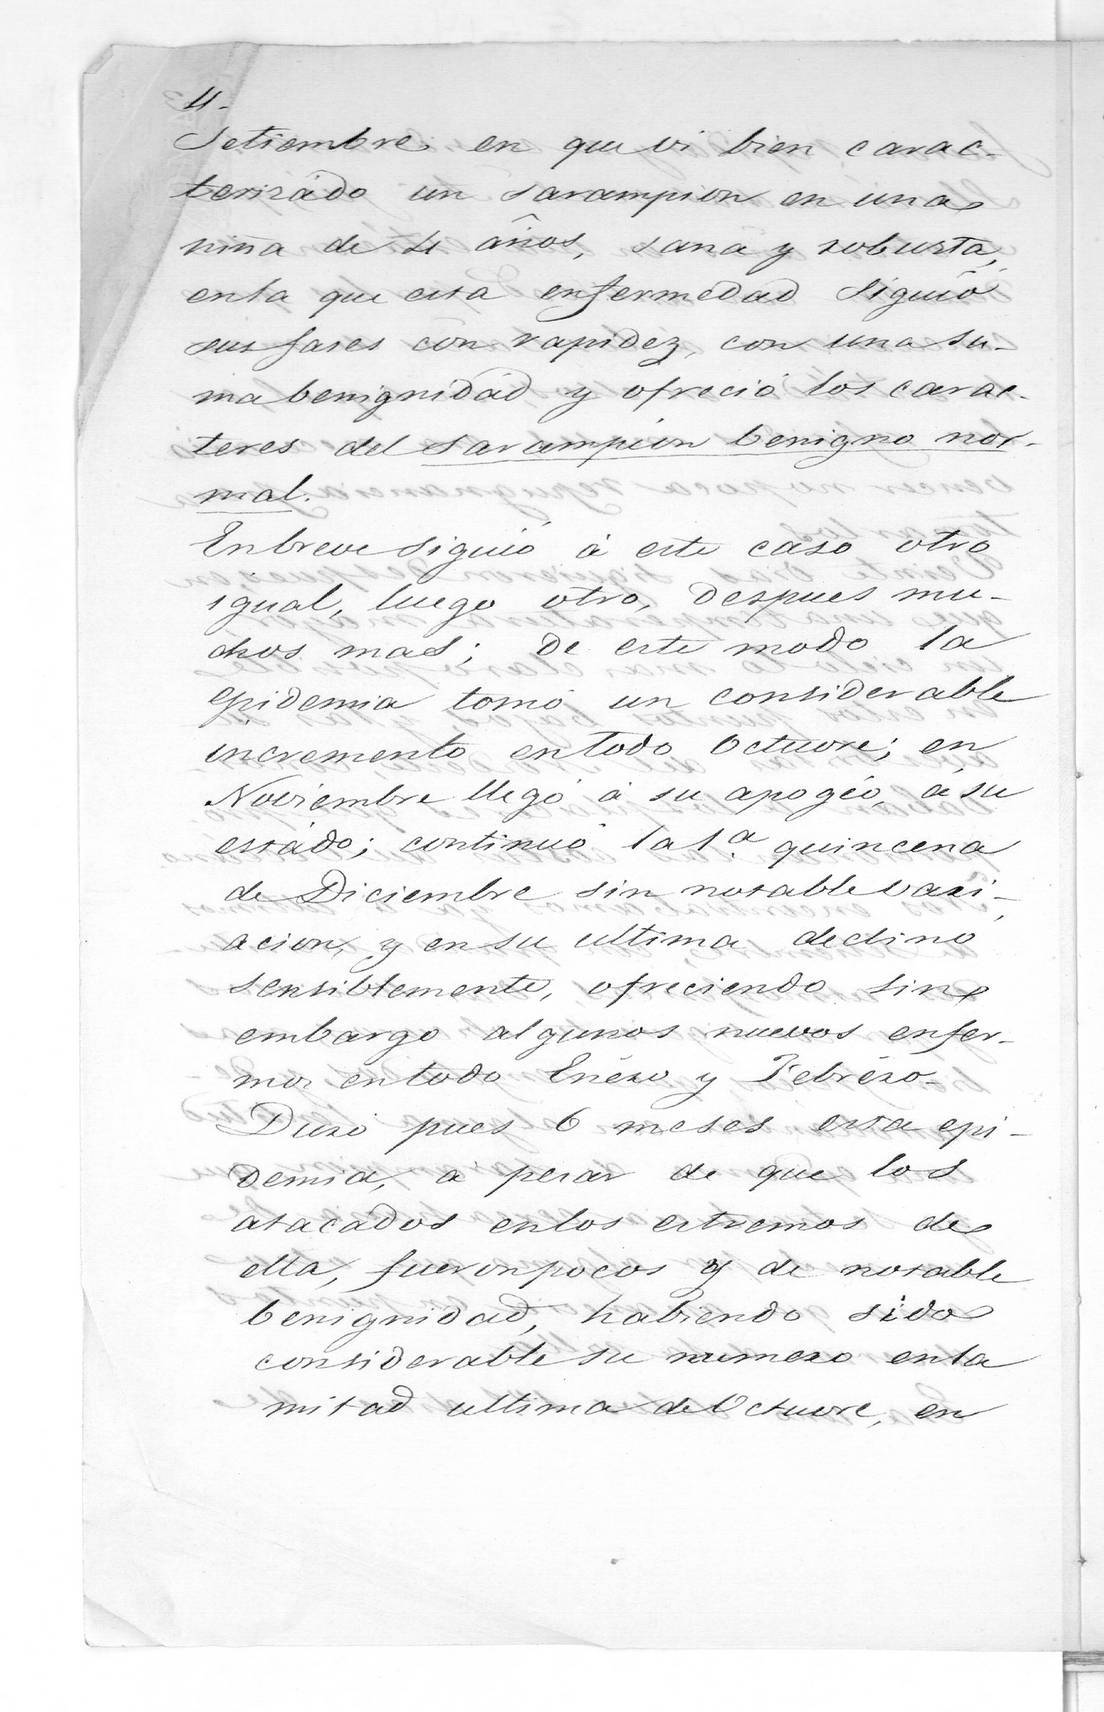 4.
Setiembre en que vi bien carac-
terizado un sarampion en una
niña de 4 años, sana y robusta,
enla que esta enfermedad siguió
sus fases con rapidez, con una su-
ma benignidad y ofreció los carac-
teres del sarampion benigno nor-
mal.
Enbreve siguió á este caso otro
igual, luego otro, despues mu-
chos mas; de este modo la
epidemia tomó un considerable
incremento entodo Octuvre; en
Noviembre llegó á su apogéo, á su
estádo; continuó la 1.ª quincena
de Diciembre sin notable vari-
acion, y en su ultima declinó
sensiblemente, ofreciendo sin
embargo algunos nuevos enfer-
mos entodo Enéro y Febréro.
Duró pues 6 meses esta epi-
demia, á pesar de que los
atacados enlos estremos de
ella, fueron pocos y de notable
benignidad, habiendo sido
considerable su numero enla
mitad ultima de Octuvre, en